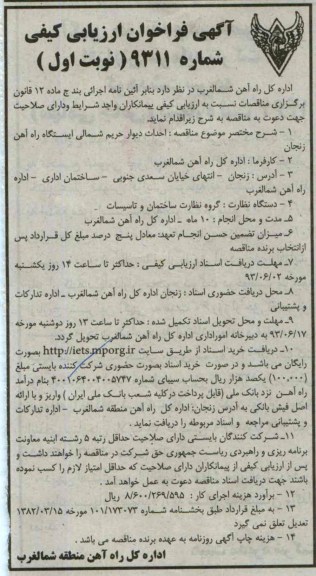 آگهی فراخوان ارزیابی کیفی
شماره ۹۳۱۱ ( نوبت اول )
اداره کل راه آهن شمالغرب در نظر دارد بنابر آئین نامه اجرائی بند ج ماده ۱۲ قانون
برگزاری مناقصات نسبت به ارزیابی کیفی پیمانکاران واجد شرایط ودارای صلاحیت
جهت دعوت به مناقصه به شرح زیراقدام نماید.
۱ – شرح مختصر موضوع مناقصه : احداث دیوار حریم شمالی ایستگاه راه آهن
زنجان
۲ – کارفرما : اداره کل راه آهن شمالغرب
۳ – آدرس : زنجان – انتهای خیابان سعدی جنوبی – ساختمان اداری – اداره
راه آهن شمالغرب
۴ – دستگاه نظارت : گروه نظارت ساختمان و تاسیسات
۵ـ مدت و محل انجام : ۱۰ ماه ـ اداره کل راه آهن شمالغرب
۶ – میزان تضمین حسن انجام تعهد: معادل پنج درصد مبلغ کل قرارداد پس
ازانتخاب برنده مناقصه
۷ – مهلت دریافت اسناد ارزیابی کیفی : حداکثر تا ساعت ۱۴ روز یکشنبه
مورخه ۹۳/۰۶/۰۲
۸ – محل دریافت حضوری اسناد : زنجان اداره کل راه آهن شمالغرب ـ اداره تدارکات
و پشتیبانی
۹ـ مهلت و محل تحویل اسناد تکمیل شده : حداکثر تا ساعت ۱۳ روز دوشنبه مورخه
۹۳/۰۶/۱۷ به دبیرخانه اموراداری اداره کل راه آهن شمالغرب تحویل گردد.
۱۰– دریافت خرید اسناد از طریق سایت http://iets.mporg.ir بصورت
رایگان می باشد و در صورت خرید اسناد بصورت حضوری شرکت کننده بایستی مبلغ
(۱۰۰,۰۰۰) یکصد هزار ریال بحساب سیبای شماره ۴۰۰۱۰۶۴۰۰۴۰۰۵۷۴۷ بنام درآمد
راه آهن نزد بانک ملی (قابل پرداخت درکلیه شعب بانک ملی ایران ) واریز و با ارائه
اصل فیش بانکی به آدرس زنجان: اداره کل راه آهن منطقه شمالغرب – اداره تدارکات
و پشتیبانی مراجعه و اسناد مربوطه را دریافت نماید.
۱۱ـ شرکت کنندگان بایستی دارای صلاحیت حداقل رتبه ۵ رشته ابنیه معاونت
برنامه ریزی و راهبردی ریاست جمهوری حق شرکت در مناقصه را خواهند داشت و
پس از ارزیابی کیفی از پیمانکاران دارای صلاحیت که حداقل امتیاز لازم را کسب نموده
باشند جهت دریافت اسناد مناقصه دعوت به عمل خواهد آمد .
۱۲ – برآورد هزینه اجرای کار : ۸/۶۰۰/۲۶۹/۵۹۵ ریال
۱۳ – به مبلغ قرارداد طبق بخشنامه شماره ۱۰۱/۱۷۳۰۷۳ مورخه ۱۳۸۲/۰۳/۱۵
تعدیل تعلق نمی گیرد
۱۴ – هزینه چاپ آگهی روزنامه به عهده برنده مناقصه می باشد .
اداره کل راه آهن منطقه شمالغرب